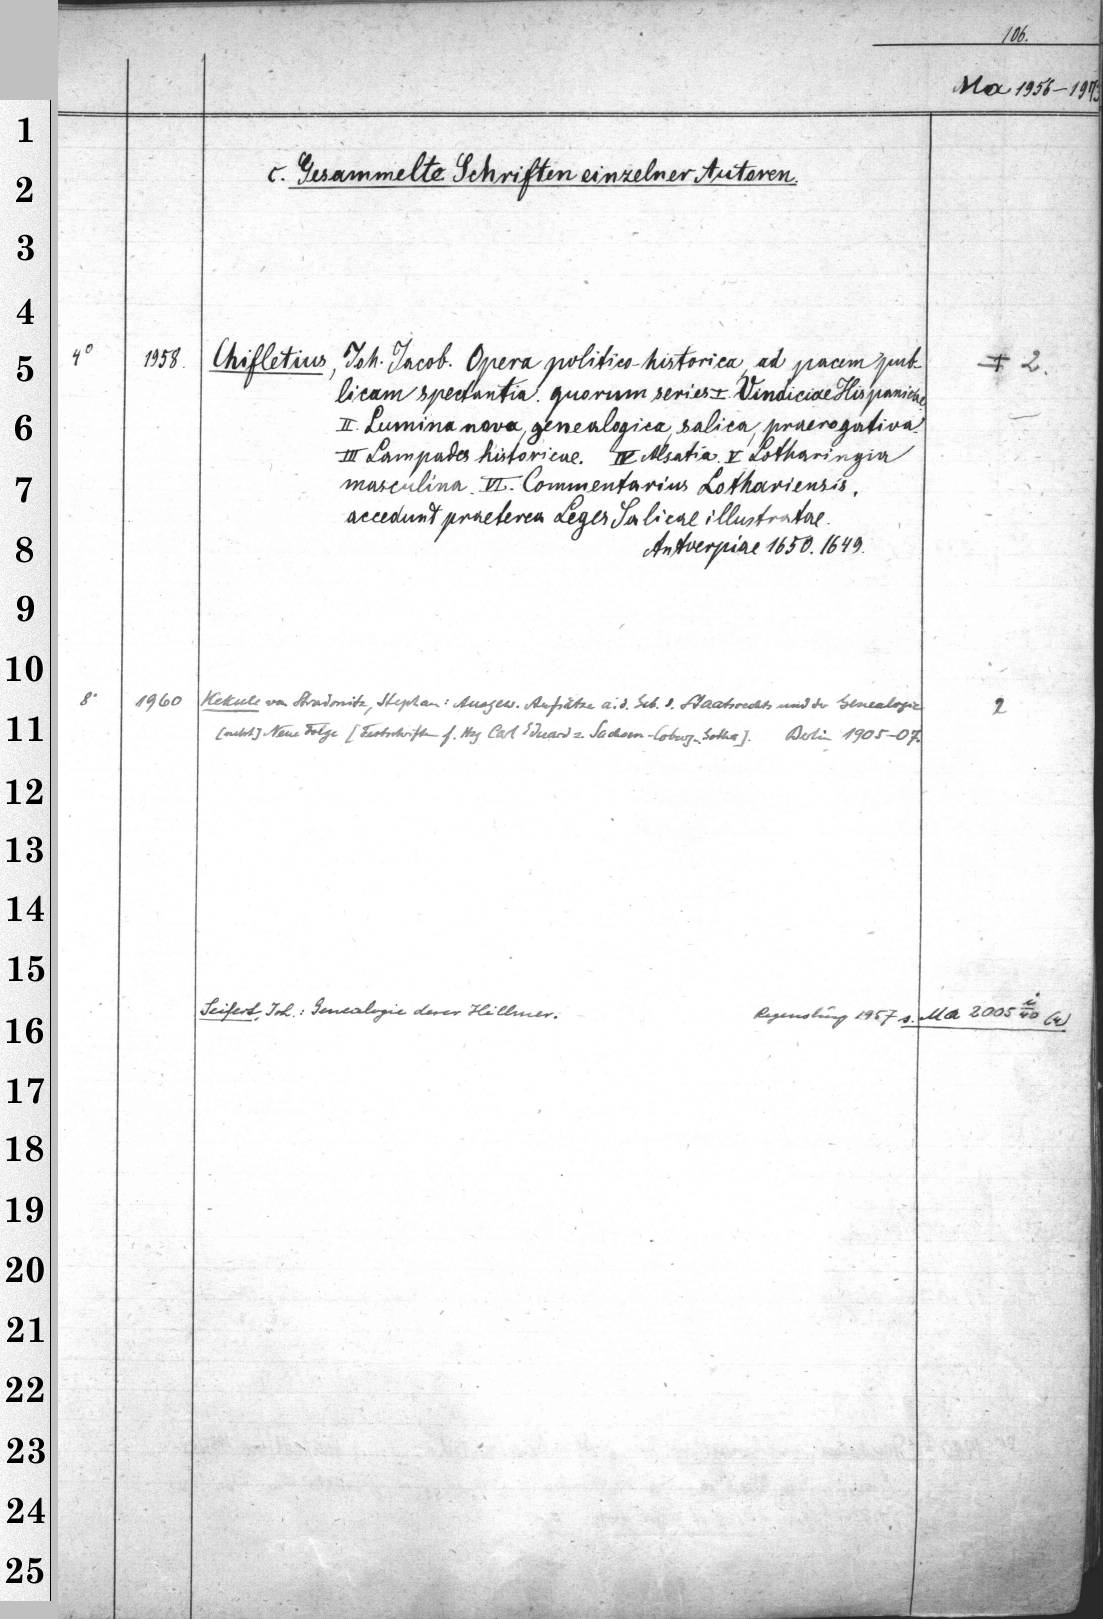 106.
Ma 1956-1973
1
2
c. Gesammelte Schriften einzelner Autoren.
3
4
5
4° 1958. Chifletius, Joh. Jacob. Opera politico-historica, ad pacem pub- 2.
licam spectantia. quorum series I Vindiciae Hispanicae
6
II Lumina nova, genealogica, salica, praerogativa.
III Lampades historicae. IV Alsatia. V Lotharingia
7
masculina. VI. Commentarius Lothariensis,
accedunt praeterea Leges Salicae illustratae.
8
Antverpiae 1650. 1649.
9
10
8° 1960 Kekule von Stradonitz, Stephan: Ausgew. Aufsätze a. d. Geb. d. Staatsrechts und der Genealogie 2
11
[nebst] Neue Folge [Festschriften f. Hzg Carl Eduard z. Sachsen-Coburg-Gotha]. Berlin 1905-07.
12
13
14
15
Seifert, Joh.: Genealogie derer Hillmer. Regensburg s. Ma 2005
16
17
18
19
20
21
22
23
24
25